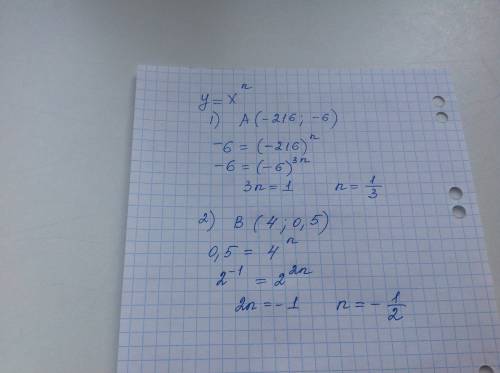 y = xⁿ
1) A (-216; -6)
-6 = (-216)ⁿ
-6 = (-6)³ⁿ
3n = 1 n = 1/3
2) B (4; 0,5)
0,5 = 4ⁿ
2⁻¹ = 2²ⁿ
2n = -1 n = -1/2